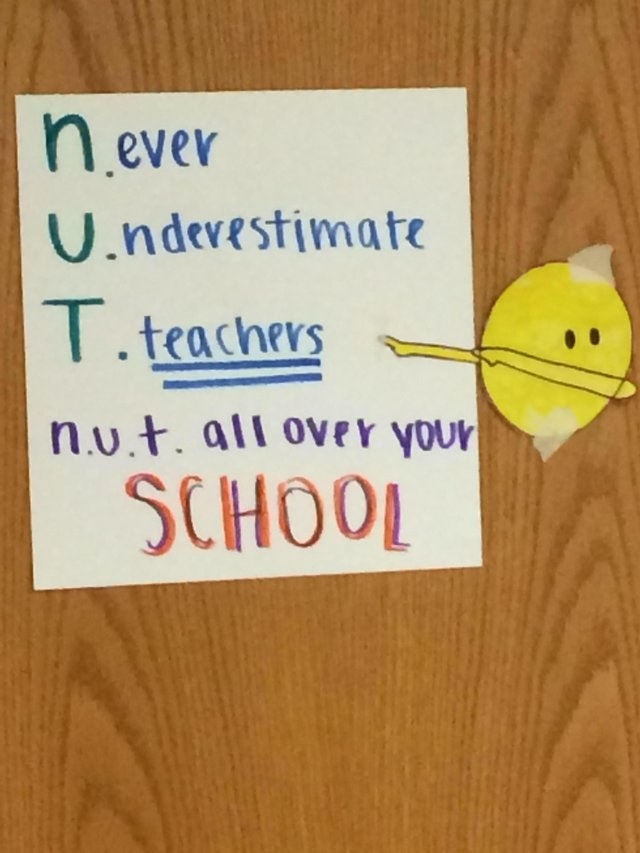 n.ever
U.nderestimate
T.teachers
n.u.t. all over your
SCHOOL